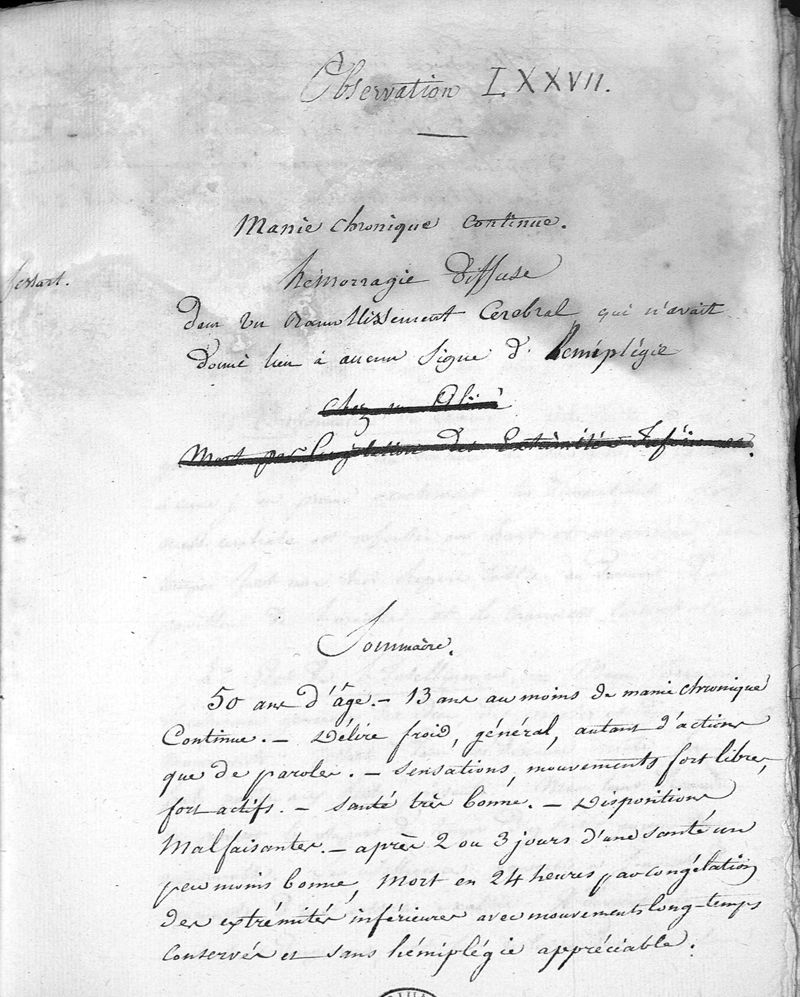 Observation LXXVII.
Manie chronique continue.
hémorragie diffuse
dans un Ramollissement Cérébral qui n'avait
donné lieu à aucun signe d'hémiplégie
chez un
Mort par Congélation des Extrémités Inférieures.
Sommaire.
50 ans d'âge. - 13 ans au moins de manie chronique
Continue. - Délire froid, général, autant d'actions
que de paroles. - Sensations, mouvements fort libres,
fort actifs. - Santé très bonne. - Dispositions
Malfaisantes. - après 2 ou 3 jours d'une santé un
peu moins bonne, Mort en 24 heures, par congélation
des extrémités inférieures avec mouvements long-temps
Conservés et sans hémiplégie appréciable.